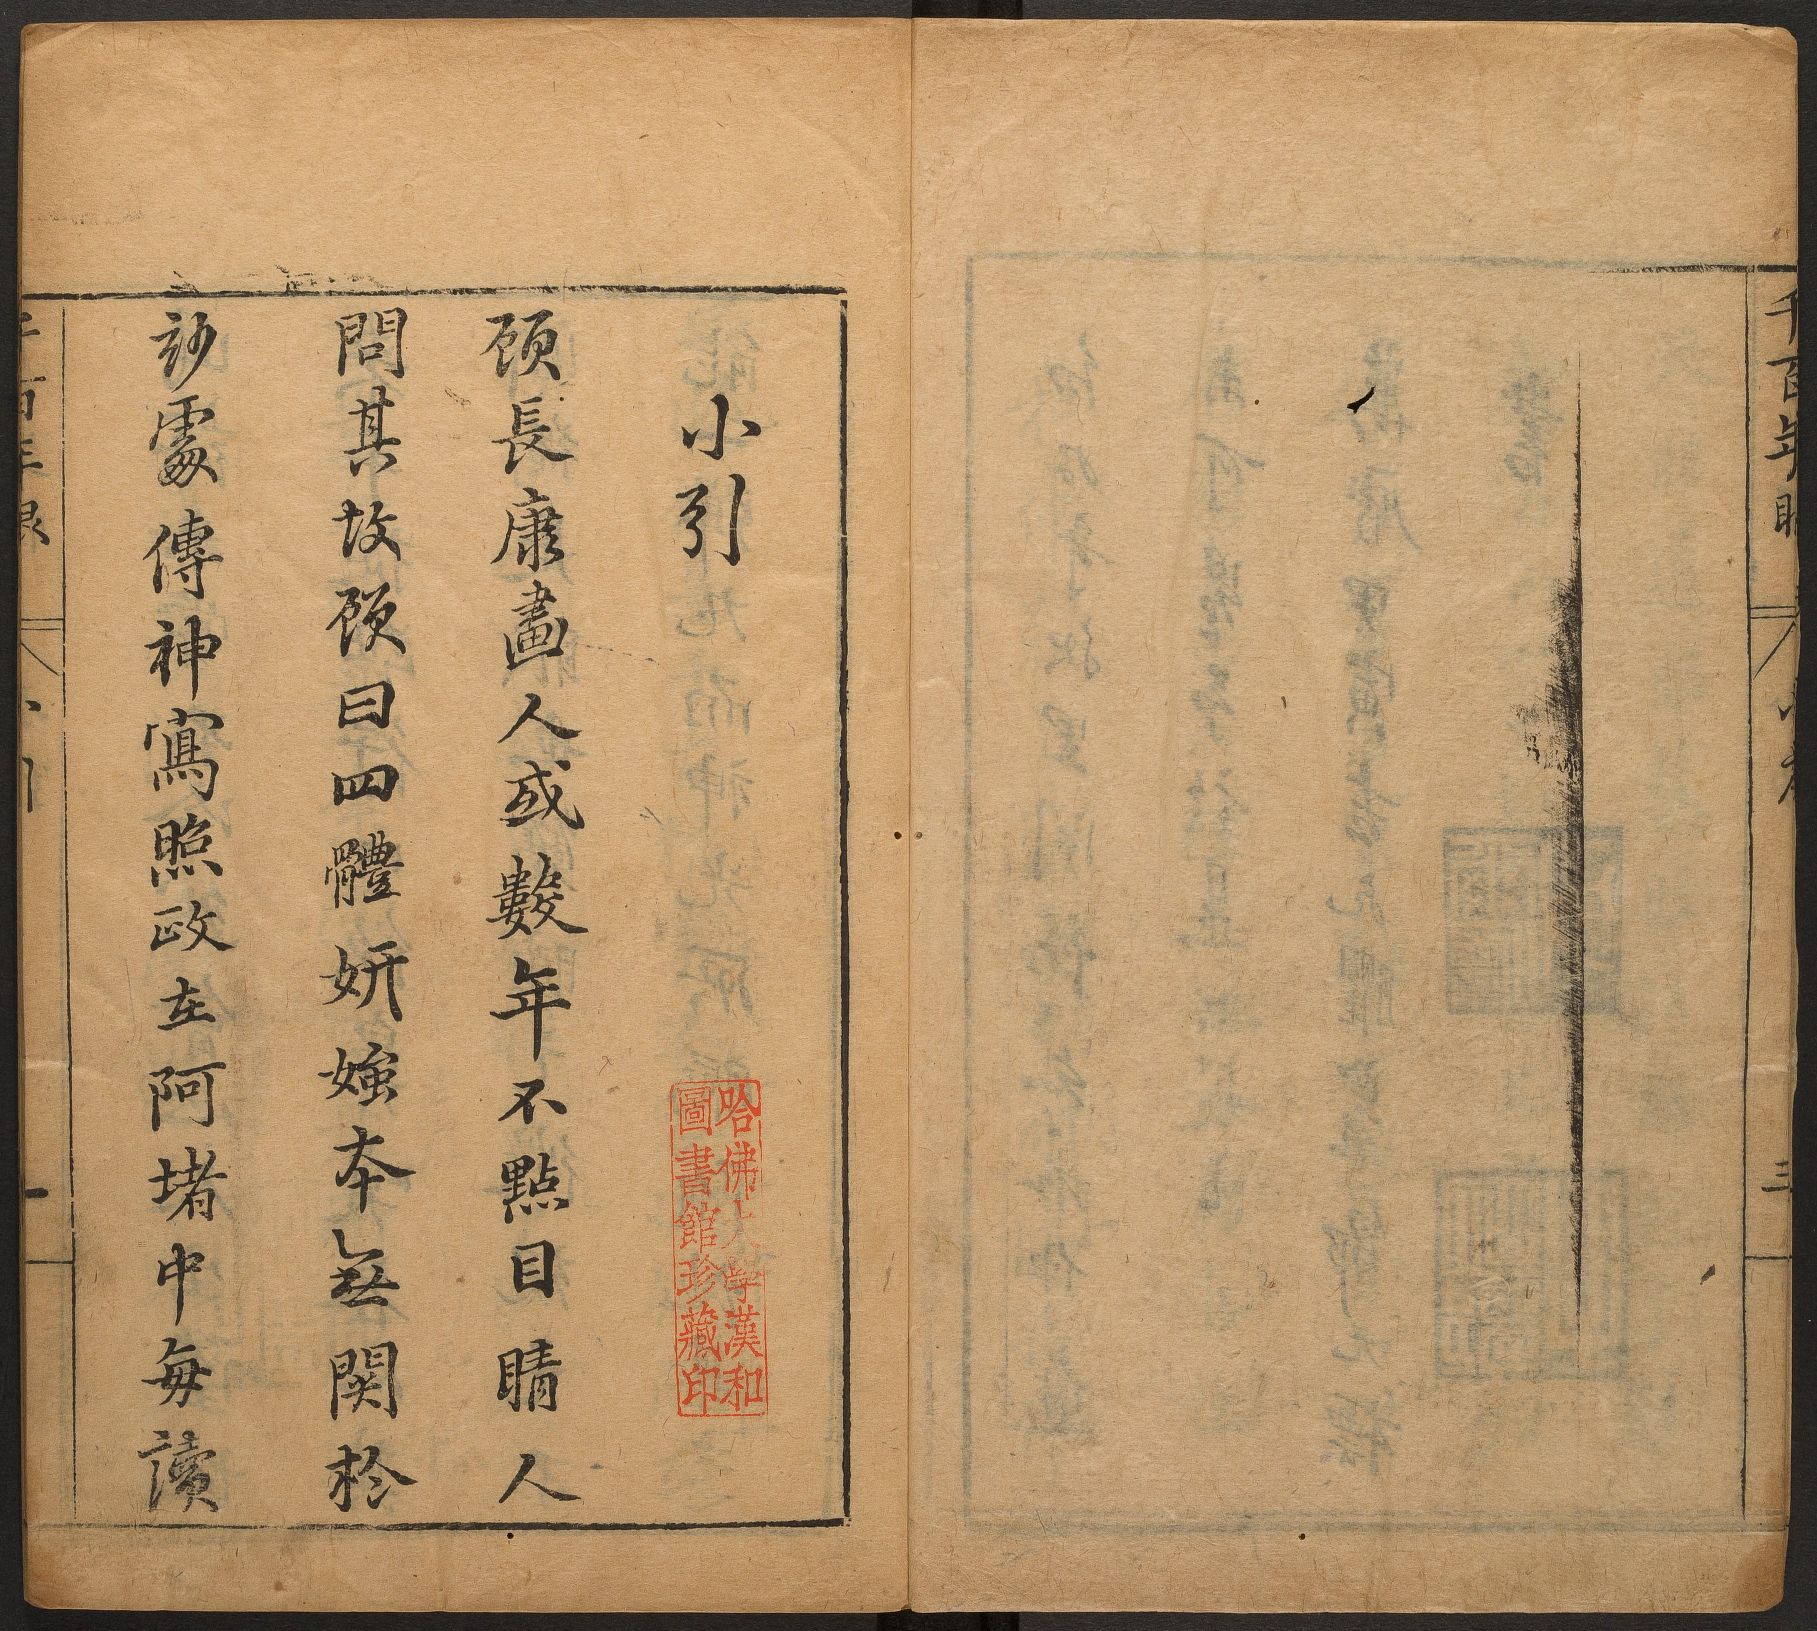 千百年眼
三
小引
顾長康畫人或數年不點目睛人
問其故顾曰四體妍媸本無関於
妙處傳神寫照政在阿堵中每讀
哈佛大學漢和
圖書館珍藏印
千百年眼
小引
一